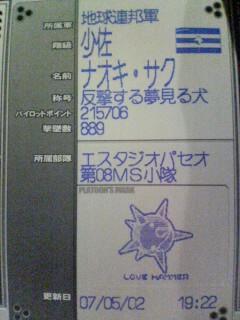 所属軍 地球連邦軍
階級 少佐
名前 ナオキ・サク
称号 反撃する夢見る犬
パイロットポイント 215706
撃墜数 889
所属部隊 エスタジオパセオ
第08MS小隊
PLATOON'S MARK
LOVE HAMMER
更新日 07/05/02 19:22